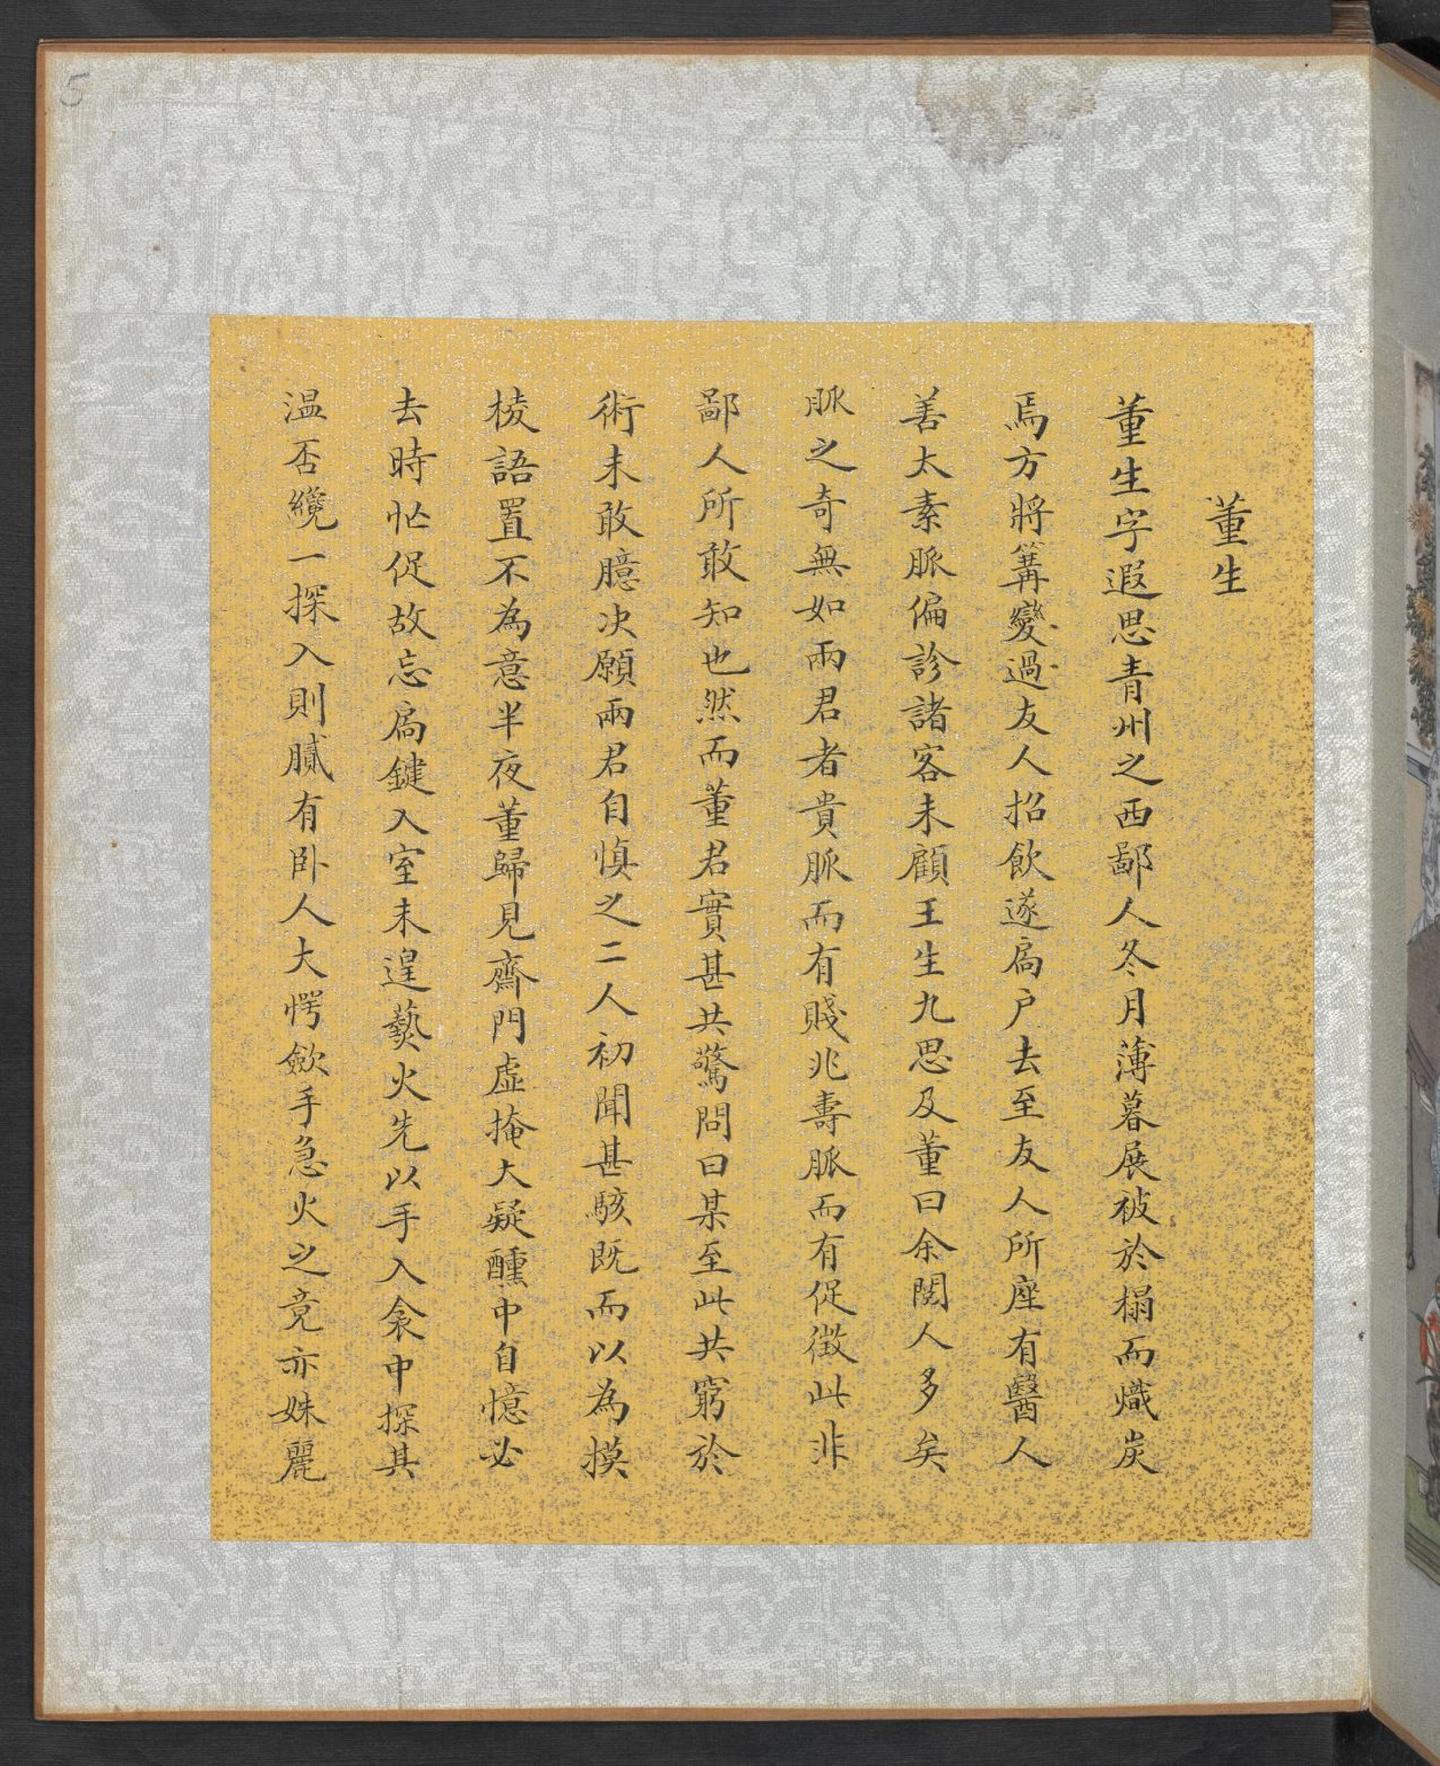 董生
董生字遐思青州之西鄙人冬月薄暮展被於榻而熾炭
焉方將篝燮過友人招飲遂扃户去至友人所座有醫人
善太素脈偏診諸客未顧王生九思及董曰余閱人多矣
脈之奇無如兩君者貴脈而有賤兆壽脈而有促徵此非
鄙人所敢知也然而董君實甚共驚問曰某至此共窮於
術未敢臆决願兩君自慎之二人初聞甚駭既而以為摸
棱語置不為意半夜董歸見齋門虛掩大疑醺中自憶必
去時忙促故忘扃鍵入室未遑爇火先以手入衾中探其
温否纔一探入則膩有卧人大愕歛手急火之竟亦姝麗
5